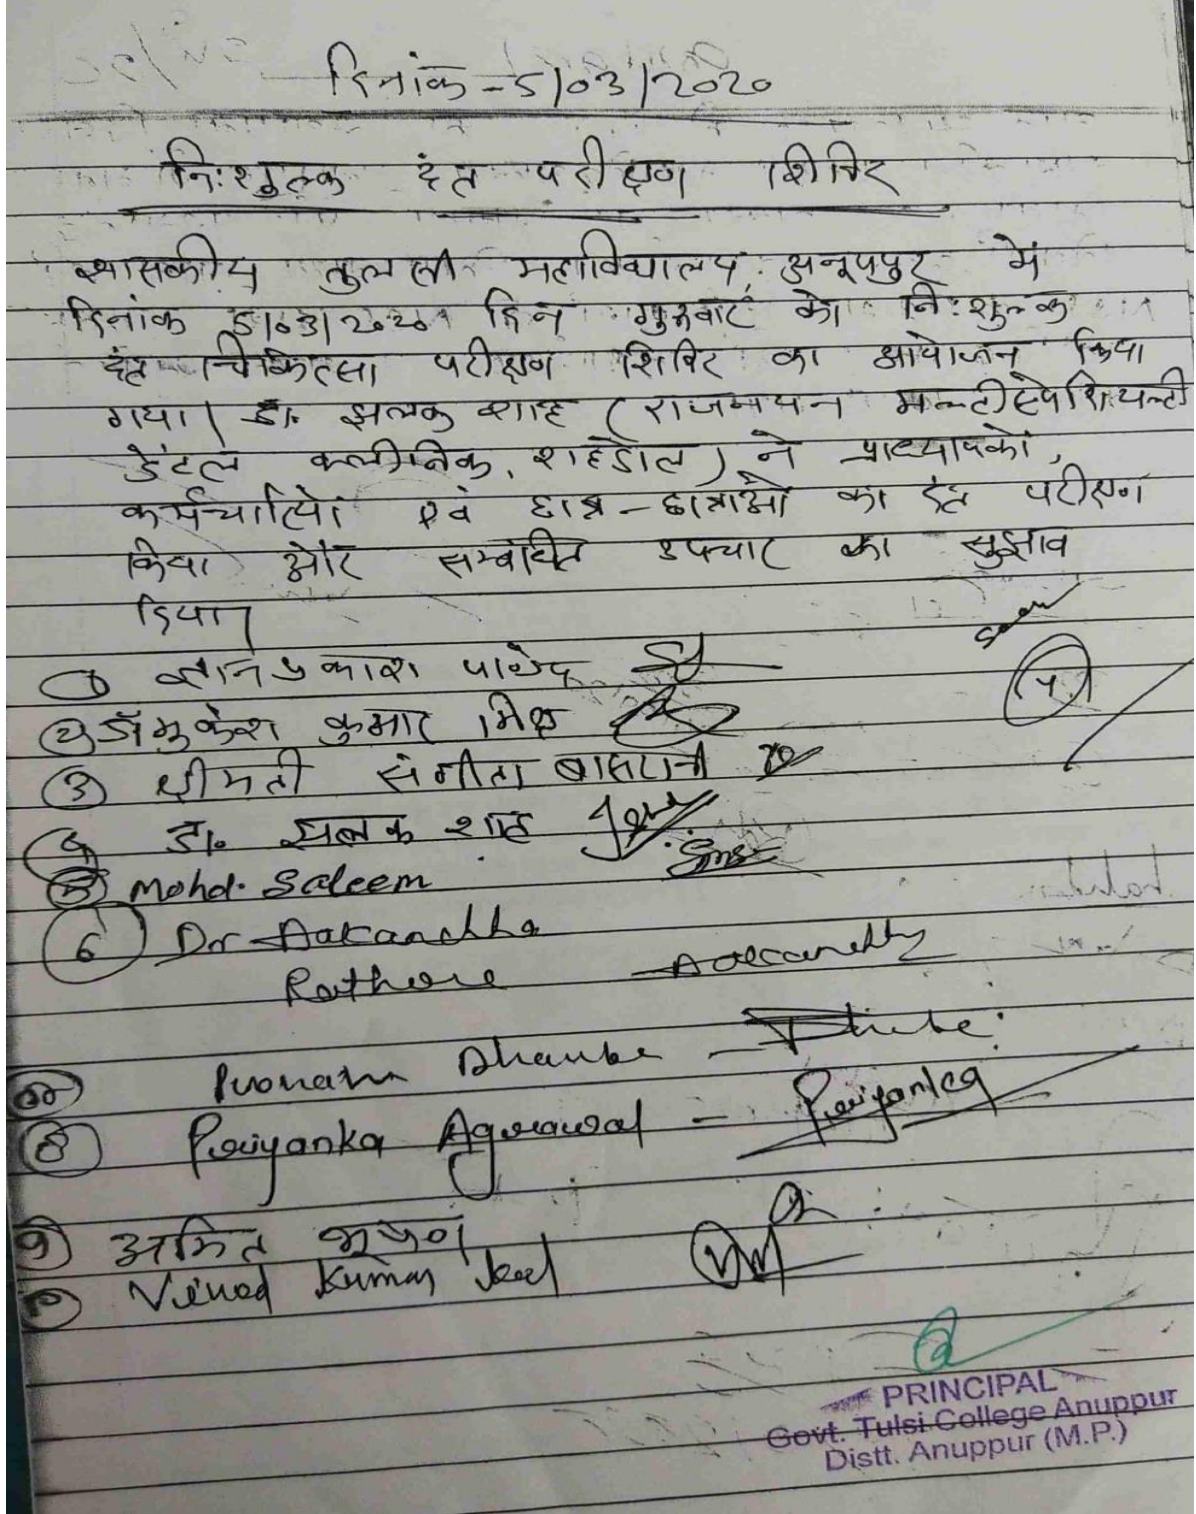 दिनांक - 5/03/2020
नि:शुल्क दंत परीक्षण शिविर
शासकीय तुलसी महाविद्यालय, अनूपपुर में
दिनांक 5/03/2020 दिन गुरुवार को नि:शुल्क
दंत चिकित्सा परीक्षण शिविर का आयोजन किया
गया। डा. झलक शाह (राजनयन मल्टीस्पेशियल्टी
डेंटल क्लीनिक, शहडोल) ने प्राध्यापकों,
कर्मचारियों एवं छात्र-छात्राओं का दंत परीक्षण
किया और सम्बंधित उपचार का सुझाव
दिया।
① ज्ञान प्रकाश पाण्डेय
② डॉ मुकेश कुमार मिश्र
③ श्रीमती संगीता बासरानी
④ डा. झलक शाह
⑤ Mohd. Saleem
⑥ Dr Aakanchha
Rathore - Aakanchha
Poonam Dhande -
⑧ Priyanka Agrawal - Priyanka
⑨ अमित भूषण
⑩ Vinod Kumar
PRINCIPAL
Govt. Tulsi College Anuppur
Distt. Anuppur (M.P.)